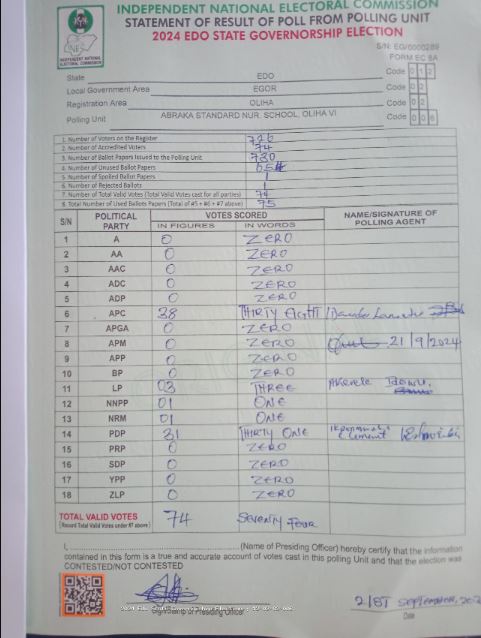 INDEPENDENT NATIONAL ELECTORAL COMMISSION
STATEMENT OF RESULT OF POLL FROM POLLING UNIT
2024 EDO STATE GOVERNORSHIP ELECTION
S/N: EG/0000289
FORM EC 8A
State EDO Code 0 1 2
Local Government Area EGOR Code 0 2
Registration Area OLIHA Code 0 2
Polling Unit ABRAKA STANDARD NUR. SCHOOL, OLIHA VI Code 0 0 6
1. Number of Voters on the Register
2. Number of Accredited Voters 74
3. Number of Ballot Papers Issued to the Polling Unit 730
4. Number of Unused Ballot Papers
5. Number of Spoiled Ballot Papers
6. Number of Rejected Ballots 1
7. Number of Total Valid Votes (Total Valid Votes cast for all parties) 74
8. Total Number of Used Ballots Papers (Total of #5 + #6 + #7 above) 75
S/N POLITICAL PARTY VOTES SCORED NAME/SIGNATURE OF POLLING AGENT
IN FIGURES IN WORDS
1 A 0 ZERO
2 AA 0 ZERO
3 AAC 0 ZERO
4 ADC 0 ZERO
5 ADP 0 ZERO
6 APC 38 THIRTY EIGHT
7 APGA 0 ZERO
8 APM 0 ZERO 21/9/2024
9 APP 0 ZERO
10 BP 0 ZERO
11 LP 03 THREE
12 NNPP 01 ONE
13 NRM 01 ONE
14 PDP 31 THIRTY ONE
15 PRP 0 ZERO
16 SDP 0 ZERO
17 YPP 0 ZERO
18 ZLP 0 ZERO
TOTAL VALID VOTES 74 SEVENTY FOUR
(Record Total Valid Votes under #7 above)
I, (Name of Presiding Officer) hereby certify that the information
contained in this form is a true and accurate account of votes cast in this polling Unit and that the election was
CONTESTED/NOT CONTESTED
21ST SEPTEMBER,
Signature of Presiding Officer
Date